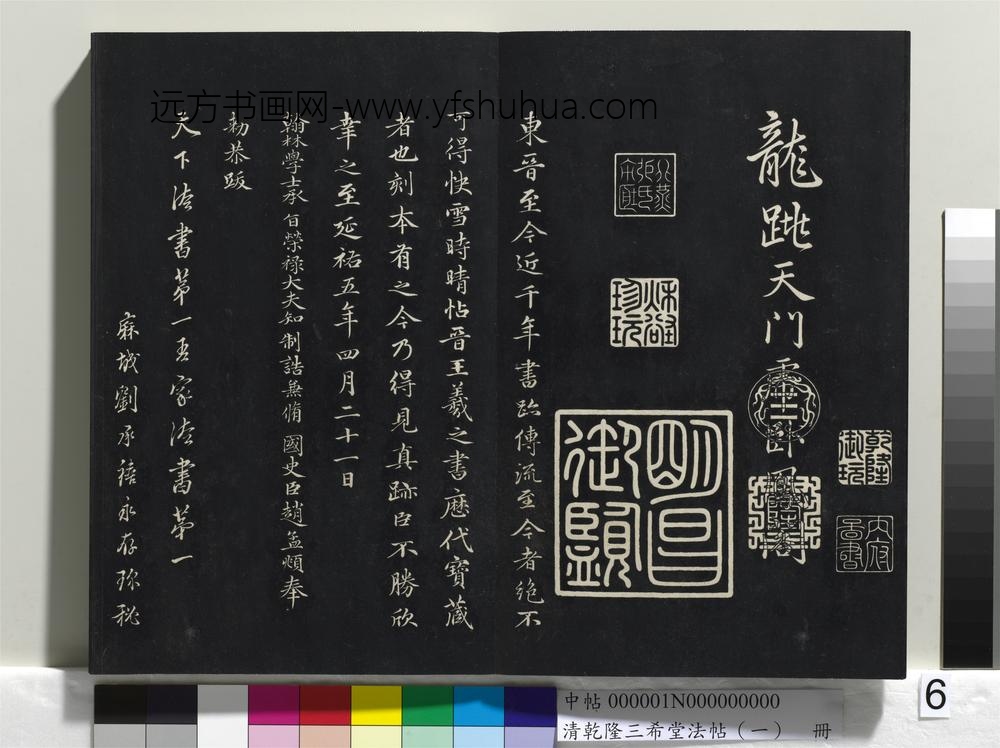 龍跳天門虎臥鳳閣
乾隆御玩
明昌御覽
東晉至今近千年書跡傳流至今者絶不
可得快雪時晴帖晉王羲之書歷代寶藏
者也刻本有之今乃得見真跡臣不勝欣
幸之至延祐五年四月二十一日
翰林學士承旨榮祿大夫知制誥兼脩國史臣趙孟頫奉
勅恭跋
天下法書第一吾家法書第一
麻城劉承禧永存珍秘
远方书画网-www.yfshuhua.com
中帖 000001N000000000
清乾隆三希堂法帖（一） 冊
6